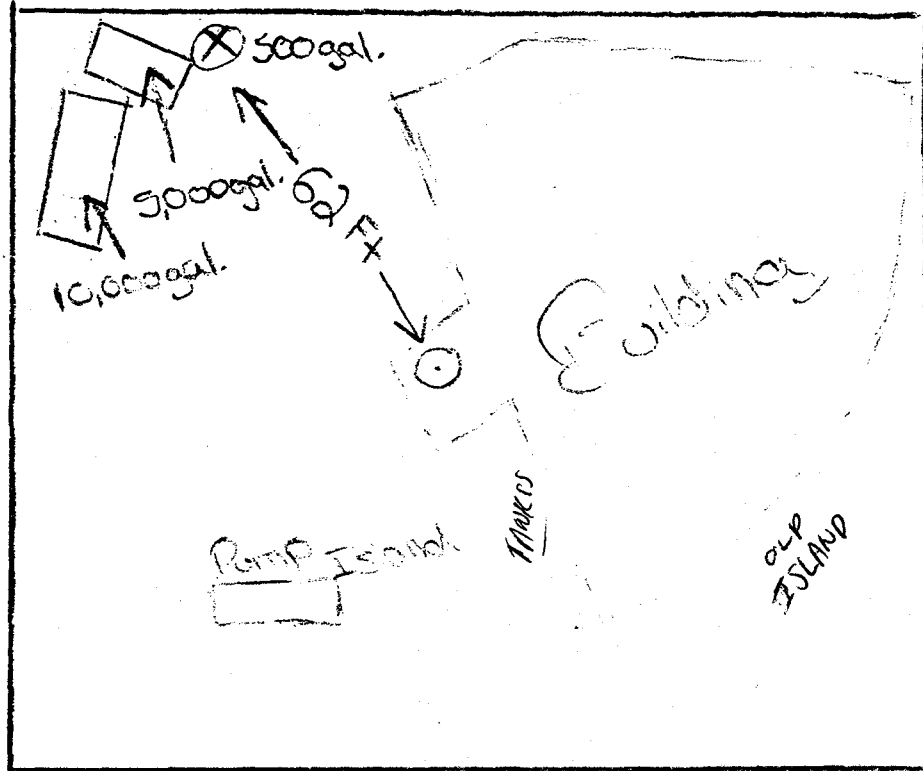 500gal.
5,000gal.
10,000gal.
62 Ft
Building
Pump Island
TANKS
OLD
ISLAND